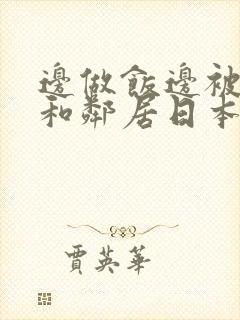 邊做飯邊被
和鄰居日本
賈英華